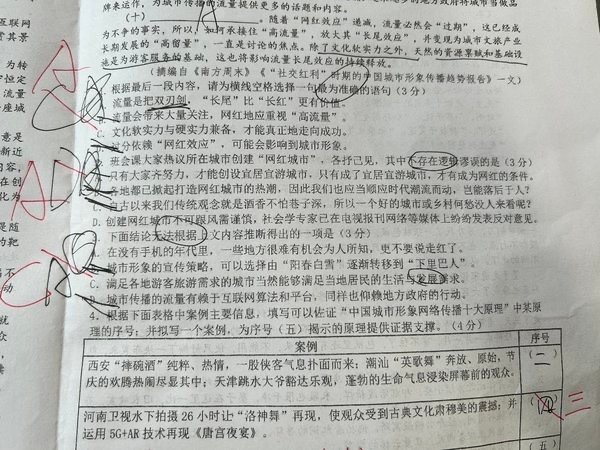 牌来运作，为城市传播的流量提供更多的话题和内容。
（十）　　　　。随着“网红效应”递减，流量必然会“过期”，这已经成
为不争的事实，所以，如何承接住“高流量”，放大其“长尾效应”，并变现为城市文旅产业
长期发展的“高留量”，一直是讨论的焦点。除了文化软实力之外，天然的资源禀赋和基础设
施是为游客服务的基础，这也将影响流量长尾效应的持续释放。
（摘编自《南方周末》《“社交红利”时期的中国城市形象传播趋势报告》一文）
根据最后一段内容，请为横线空格选择一句最为准确的语句（3分）
流量是把双刃剑，“长尾”比“长红”更有价值。
流量会带来大量关注，网红地应重视“高流量”。
C. 文化软实力与硬实力兼备，才能真正地走向成功。
过分依赖“网红效应”，可能会影响到城市形象。
班会课大家热议所在城市创建“网红城市”，各抒己见，其中不存在逻辑谬误的是（3分）
只有大家齐努力，才能创设宜居宜游城市，只有成了宜居宜游城市，才有成为网红的条件。
各地都已掀起打造网红城市的热潮，因此我们也应当顺应时代潮流而动，岂能落后于人？
自古以来我们传统观念就是酒香不怕巷子深，所以一个好的城市或乡村何愁没人来看呢？
D. 创建网红城市不可跟风需谨慎，社会学专家已在电视报刊网络等媒体上纷纷发表反对意见。
3. 下面结论无法根据上文内容推断得出的一项是（3分）
在没有手机的年代里，一些地方很难有机会为人所知，更不要说走红了。
城市形象的宣传策略，可以选择由“阳春白雪”逐渐转移到“下里巴人”。
C. 满足各地游客旅游需求的城市当然能够满足当地居民的生活与发展需求。
城市传播的流量有赖于互联网算法和平台，同样也仰赖地方政府的行动。
4. 根据下面表格中案例主要信息，填写可以佐证“中国城市形象网络传播十大原理”中某原
理的序号；并拟写一个案例，为序号（五）揭示的原理提供证据支撑。（4分）
案例　序号
西安“摔碗酒”纯粹、热情，一股侠客气息扑面而来；潮汕“英歌舞”奔放、原始，节
庆的欢腾热闹尽显其中；天津跳水大爷豁达乐观，蓬勃的生命气息浸染屏幕前的观众。
（二）
河南卫视水下拍摄26小时让“洛神舞”再现，使观众受到古典文化肃穆美的震撼；并
运用5G+AR技术再现《唐宫夜宴》。
三
（五）